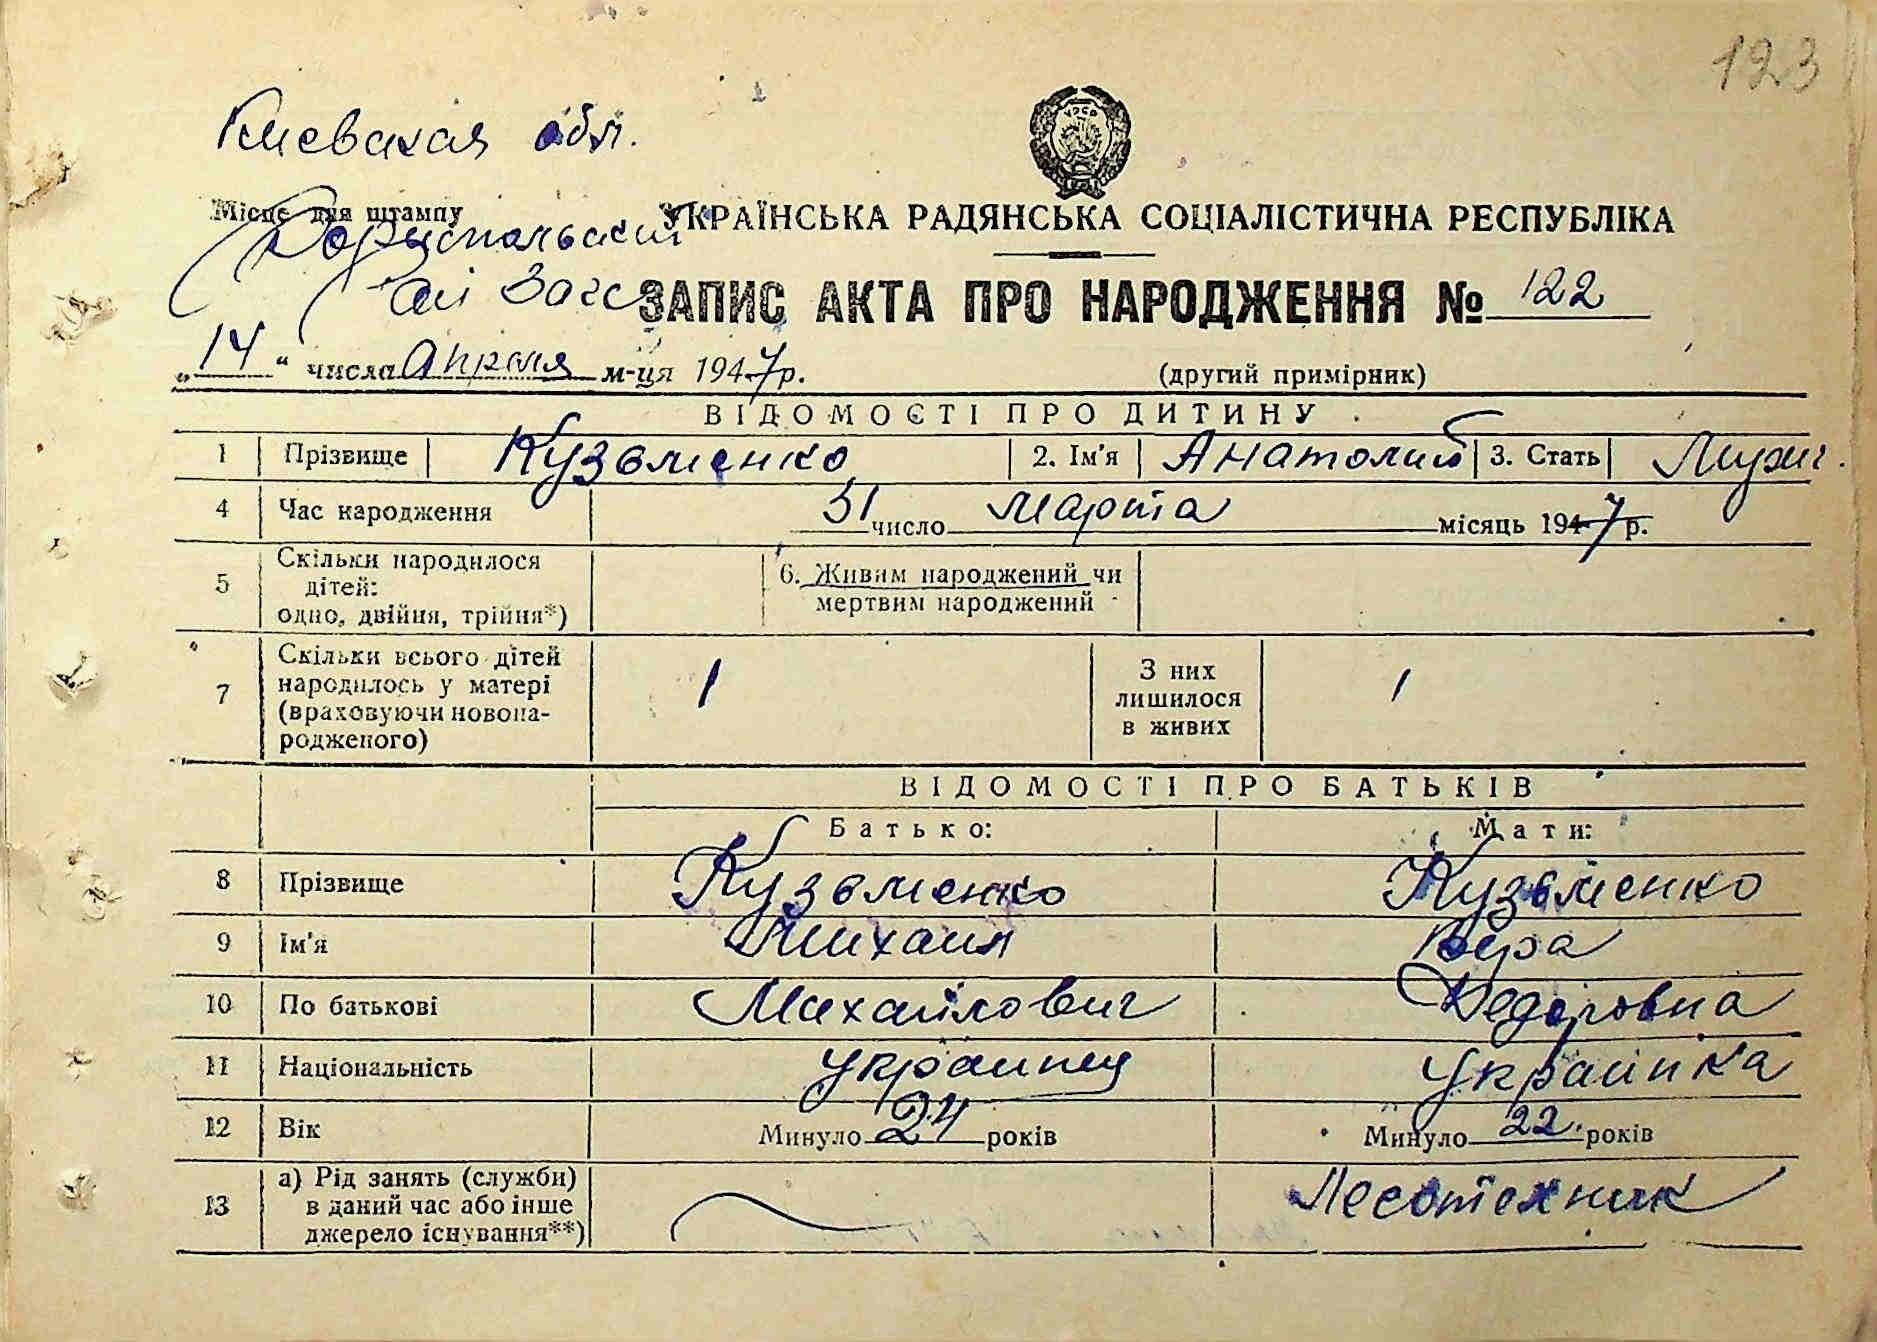 123
Киевская обл.
УРСР
Місце для штампу
УКРАЇНСЬКА РАДЯНСЬКА СОЦІАЛІСТИЧНА РЕСПУБЛІКА
Бориспольский
рай Загс
ЗАПИС АКТА ПРО НАРОДЖЕННЯ № 122
„14“ числа Апреля м-ця 1947 р.
(другий примірник)
ВІДОМОСТІ ПРО ДИТИНУ
1 Прізвище Кузьменко 2. Ім'я Анатолий 3. Стать Мужс.
4 Час народження 31 число Марта місяць 1947 р.
5 Скільки народилося дітей: одно, двійня, трійня*) 6. Живим народжений чи мертвим народжений
7 Скільки всього дітей народилось у матері (враховуючи новона-родженого) 1 З них лишилося в живих 1
ВІДОМОСТІ ПРО БАТЬКІВ
Батько: Мати:
8 Прізвище Кузьменко Кузьменко
9 Ім'я Михаил Вера
10 По батькові Михайлович Федоровна
11 Національність украинец Украинка
12 Вік Минуло 24 років Минуло 22 років
13 а) Рід занять (служби) в даний час або інше джерело існування**) Лесотехник